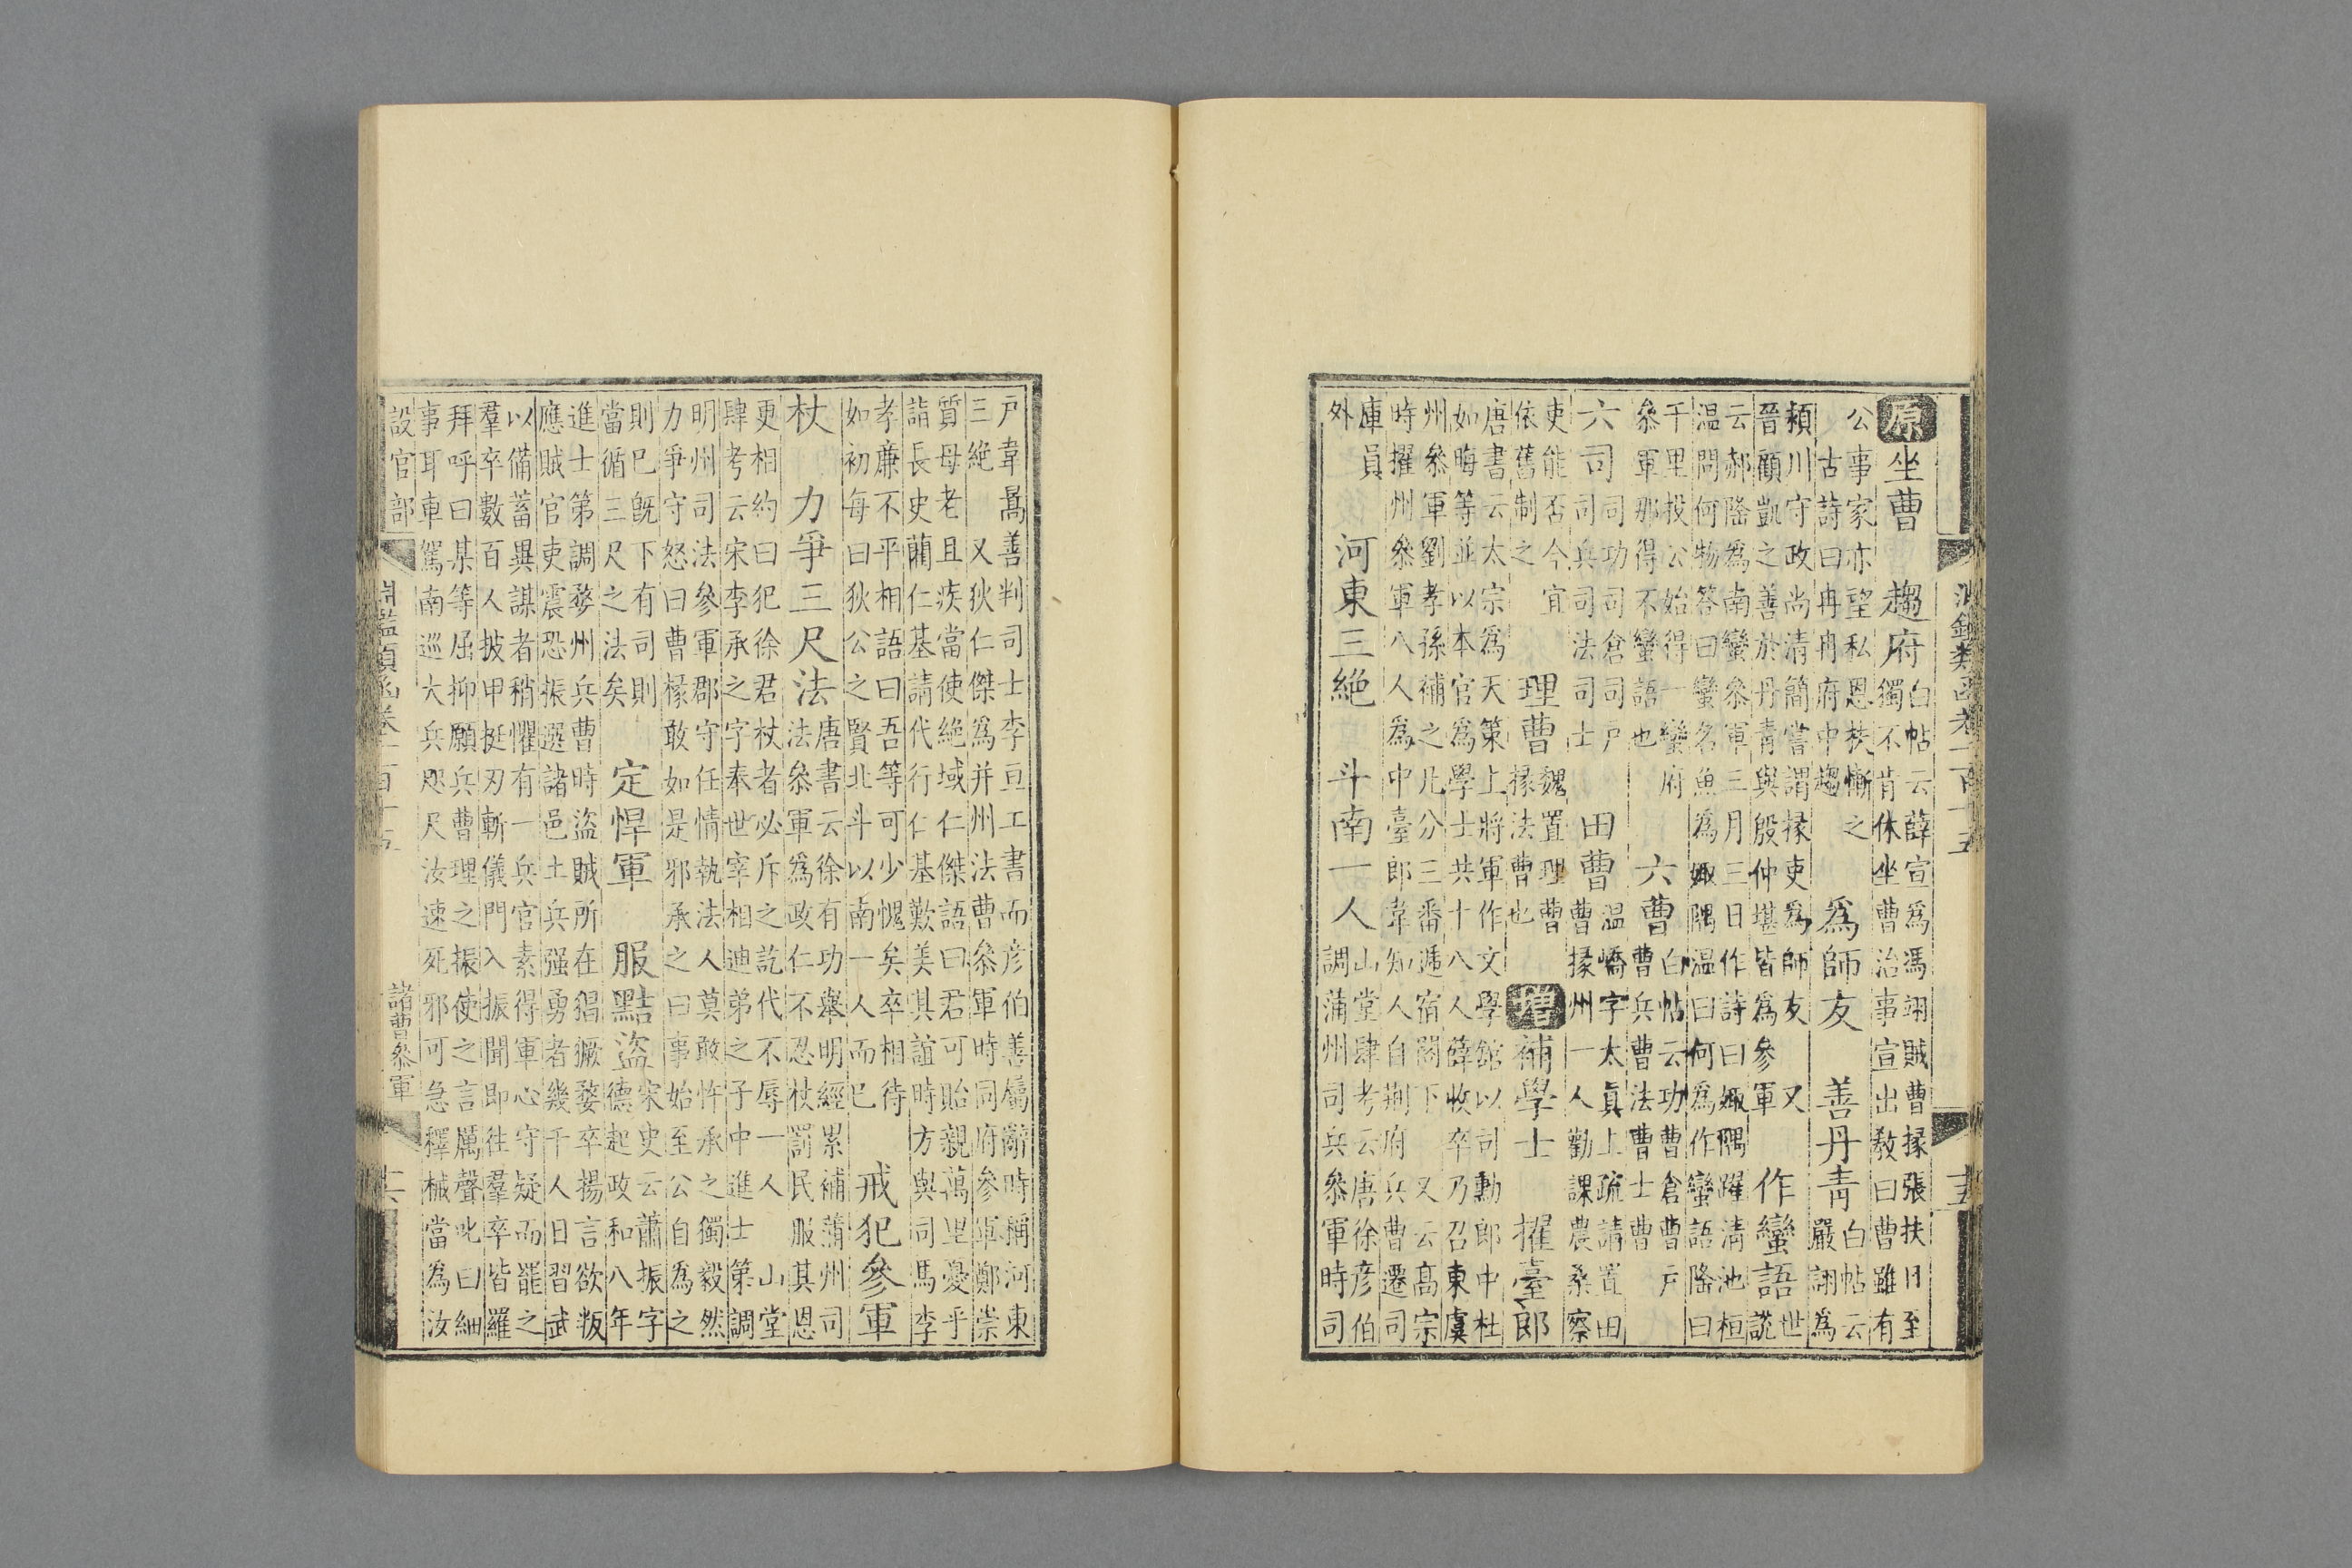 淵鑑類函卷一百十五
十五
原坐曹 趨府
白帖云薛宣爲馮翊賊曹掾張扶日至
獨不肯休坐曹治事宣出教曰曹雖有
公事家亦望私恩扶慚之
古詩曰冉冉府中趨
爲師友 善丹青
白帖云
嚴詡爲
潁川守政尚清簡嘗謂掾吏爲師友 又
晉顧凱之善於丹青與殷仲堪皆爲參軍
作蠻語
世
說
云郝隆爲南蠻參軍三月三日作詩曰娵隅躍清池桓
温問何物答曰蠻名魚爲娵隅温曰何爲作蠻語隆曰
千里投公始得一蠻府
參軍那得不蠻語也
六曹
白帖云功曹倉曹戶
曹兵曹法曹士曹
六司
司功司倉司戶
司兵司法司士
田曹
温嶠字太眞上疏請置田
曹掾州一人勸課農桑察
吏能否今宜
依舊制之
理曹
魏置理曹
掾法曹也
增補學士 擢臺郎
唐書云太宗爲天策上將軍作文學館以司勳郎中杜
如晦等並以本官爲學士共十八人薛收卒乃召東虞
州參軍劉孝孫補之凡分三番遞宿閣下 又云高宗
時擢州參軍八人爲中臺郎韋知人自荊府兵曹遷司
庫員
外
河東三絶 斗南一人
山堂肆考云唐徐彦伯
調蒲州司兵參軍時司
戶韋暠善判司士李亘工書而彦伯善屬辭時稱河東
三絶 又狄仁傑爲并州法曹參軍時同府參軍鄭崇
質母老且疾當使絶域仁傑語曰君可貽親萬里憂乎
詣長史藺仁基請代行仁基歎美其誼時方與司馬李
孝廉不平相語曰吾等可少愧矣卒相待
如初每曰狄公之賢北斗以南一人而已
戒犯參軍
杖 力爭三尺法
唐書云徐有功舉明經累補蒲州司
法參軍爲政仁不忍杖罰民服其恩
更相約曰犯徐君杖者必斥之訖代不辱一人 山堂
肆考云宋李承之字奉世宰相迪弟之子中進士第調
明州司法參軍郡守任情執法人莫敢忤承之獨毅然
力爭守怒曰曹掾敢如是邪承之曰事始至公自爲之
則已既下有司則
當循三尺之法矣
定悍軍 服黠盜
宋史云蕭振字
德起政和八年
進士第調婺州兵曹時盜賊所在猖獗婺卒揚言欲叛
應賊官吏震恐振選諸邑土兵强勇者幾千人日習武
以備蓄異謀者稍懼有一兵官素得軍心守疑而罷之
羣卒數百人披甲挺刃斬儀門入振聞即往羣卒皆羅
拜呼曰某等屈抑願兵曹理之振使之言厲聲叱曰細
事耳車駕南巡大兵咫尺汝速死邪可急擇械當爲汝
設官部
淵鑑類函卷一百十五
諸曹參軍
十六